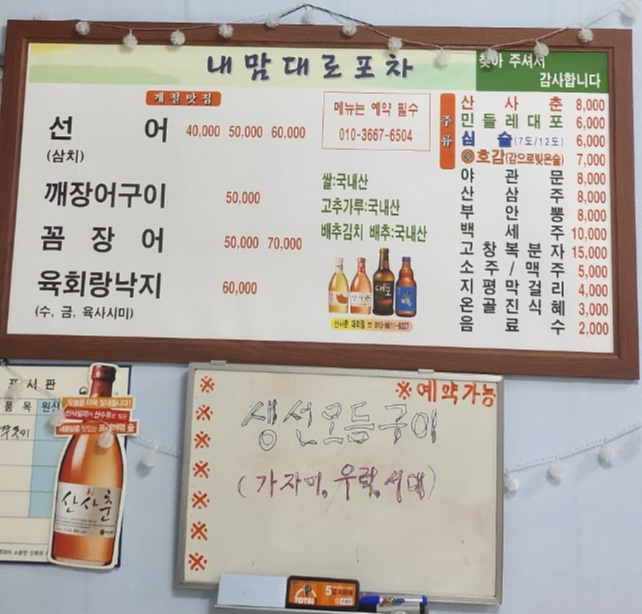 내맘대로포차
찾아 주셔서
감사합니다
계절맛집
선 어 40,000 50,000 60,000
(삼치)
깨장어구이 50,000
꼼 장 어 50,000 70,000
육회랑낙지 60,000
(수, 금, 육사시미)
메뉴는 예약 필수
010-3667-6504
쌀:국내산
고추가루:국내산
배추김치 배추:국내산
산사춘
대포
주류
산 사 춘 8,000
민들레대포 6,000
심 술(7도/12도) 6,000
호감(감으로빚은술) 7,000
야 관 문 8,000
산 삼 주 8,000
부 안 뽕 8,000
백 세 주 10,000
고 창 복 분 자 15,000
소 주 / 맥 주 5,000
지 평 막 걸 리 4,000
진 식 혜 3,000
온 골
음 료 수 2,000
표 시 판
품 목 원산
오늘을 더욱 빛내줍니다!
산사춘
※예약가능
생선모듬구이
(가자미, 우럭, 서대)
※
※
※
※
※
※
※
TOTAL